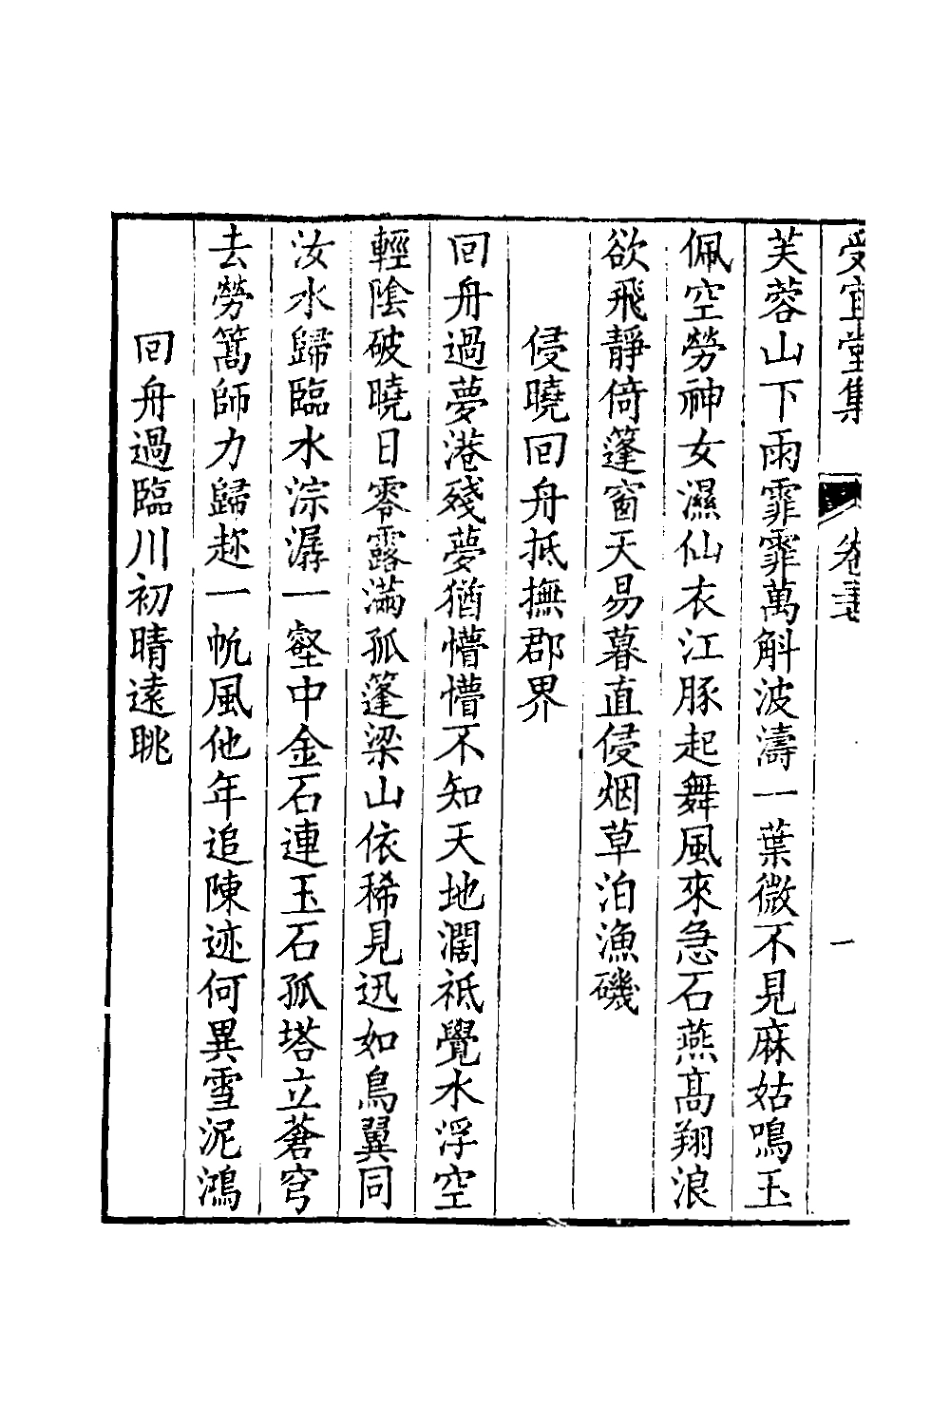 受宜堂集 卷 一
芙蓉山下雨霏霏萬斛波濤一葉微不見麻姑鳴玉
佩空勞神女濕仙衣江豚起舞風來急石燕高翔浪
欲飛靜倚蓬窗天易暮直侵烟草泊漁磯
侵曉回舟抵撫郡界
回舟過夢港殘夢猶懵懵不知天地濶祗覺水浮空
輕陰破曉日零露滿孤篷梁山依稀見迅如鳥翼同
汝水歸臨水淙潺一壑中金石連玉石孤塔立蒼穹
去勞篙師力歸趂一帆風他年追陳迹何異雪泥鴻
回舟過臨川初晴遠眺